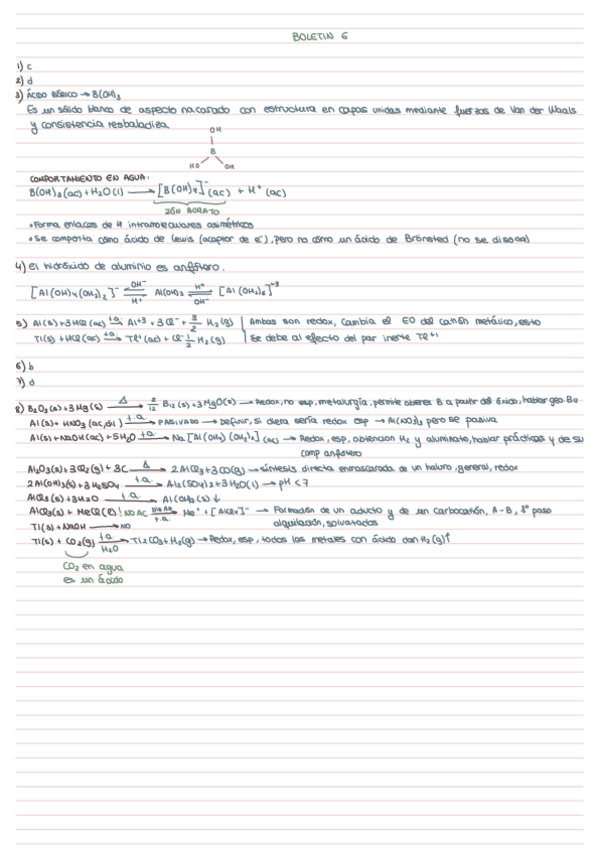 BOLETIN 6
1) c
2) d
3) ÁCIDO BÓRICO → B(OH)₃
Es un sólido blanco de aspecto nacarado con estructura en capas unidas mediante fuerzas de Van der Waals
y consistencia resbaladiza
OH
B
HO OH
COMPORTAMIENTO EN AGUA:
B(OH)₃(ac) + H₂O(l) → [B(OH)₄]⁻(ac) + H⁺(ac)
IÓN BORATO
• Forma enlaces de H intramoleculares asimétricos
• Se comporta como ácido de Lewis (aceptor de e⁻), pero no como un ácido de Brönsted (no se disocia)
4) El hidróxido de aluminio es anfótero.
[Al(OH)₄(OH₂)₂]⁻ ⇌ Al(OH)₃ ⇌ [Al(OH₂)₆]⁺³
OH⁻ H⁺ H⁺ OH⁻
5) Al(s) + 3HCl(ac) t.a. → Al⁺³ + 3Cl⁻ + 3/2 H₂(g) | Ambas son redox, cambia el EO del catión metálico, esto
Tl(s) + HCl(ac) t.a. → Tl⁺(ac) + Cl⁻ 1/2 H₂(g) | se debe al efecto del par inerte Tl⁺¹
6) b
7) d
8) B₂O₃(s) + 3Mg(s) Δ → 2/12 B₁₂(s) + 3MgO(s) → Redox, no esp, metalurgia, permite obtener B a partir del óxido, hablar geo. B₁₂
Al(s) + HNO₃(ac, dil) t.a. → PASIVADO → Definir, si diera sería redox esp → Al(NO₃)₃ pero se pasiva
Al(s) + NaOH(ac) + 5H₂O t.a. → Na[Al(OH)₄(OH₂)₂](ac) → Redox, esp, obtención H₂ y aluminato, hablar prácticas y de su
comp anfótero
Al₂O₃(s) + 3Cl₂(g) + 3C Δ → 2AlCl₃ + 3CO(g) → síntesis directa enmascarada de un haluro, general, redox
2Al(OH)₃(s) + 3H₂SO₄ t.a. → Al₂(SO₄)₃ + 3H₂O(l) → pH < 7
AlCl₃(s) + 3H₂O t.a. → Al(OH)₃(s) ↓
AlCl₃(s) + MeCl(l) ! NO AC t.a. → Me⁺ + [AlCl₄]⁻ → Formación de un aducto y de un carbocatión, A-B, 1º paso
alquilación, solvatados
Tl(s) + NaOH → NO
Tl(s) + CO₂(g) t.a. H₂O → Tl₂CO₃ + H₂(g) → Redox, esp, todos los metales con ácido dan H₂(g)↑
CO₂ en agua
es un ácido